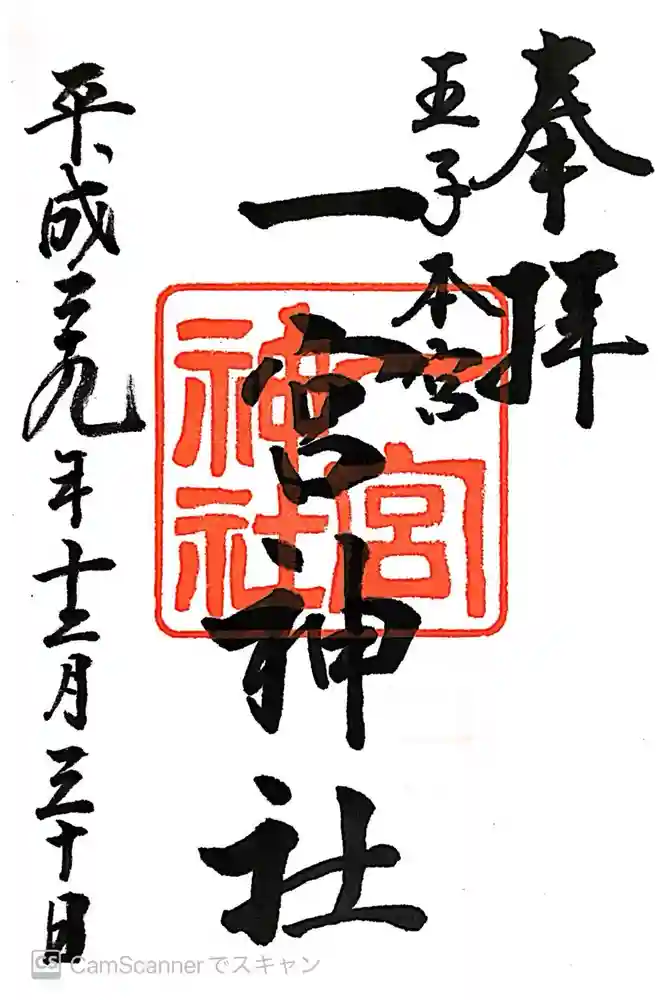 奉拝
王子本宮
一宮神社
一宮
神社
平成二十九年十二月三十日
CS CamScannerでスキャン